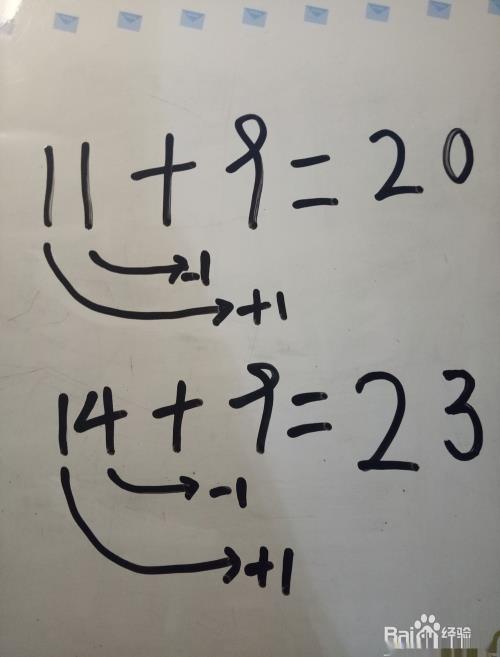 11 + 9 = 20
-1
+1
14 + 9 = 23
-1
+1
Baidu 经验